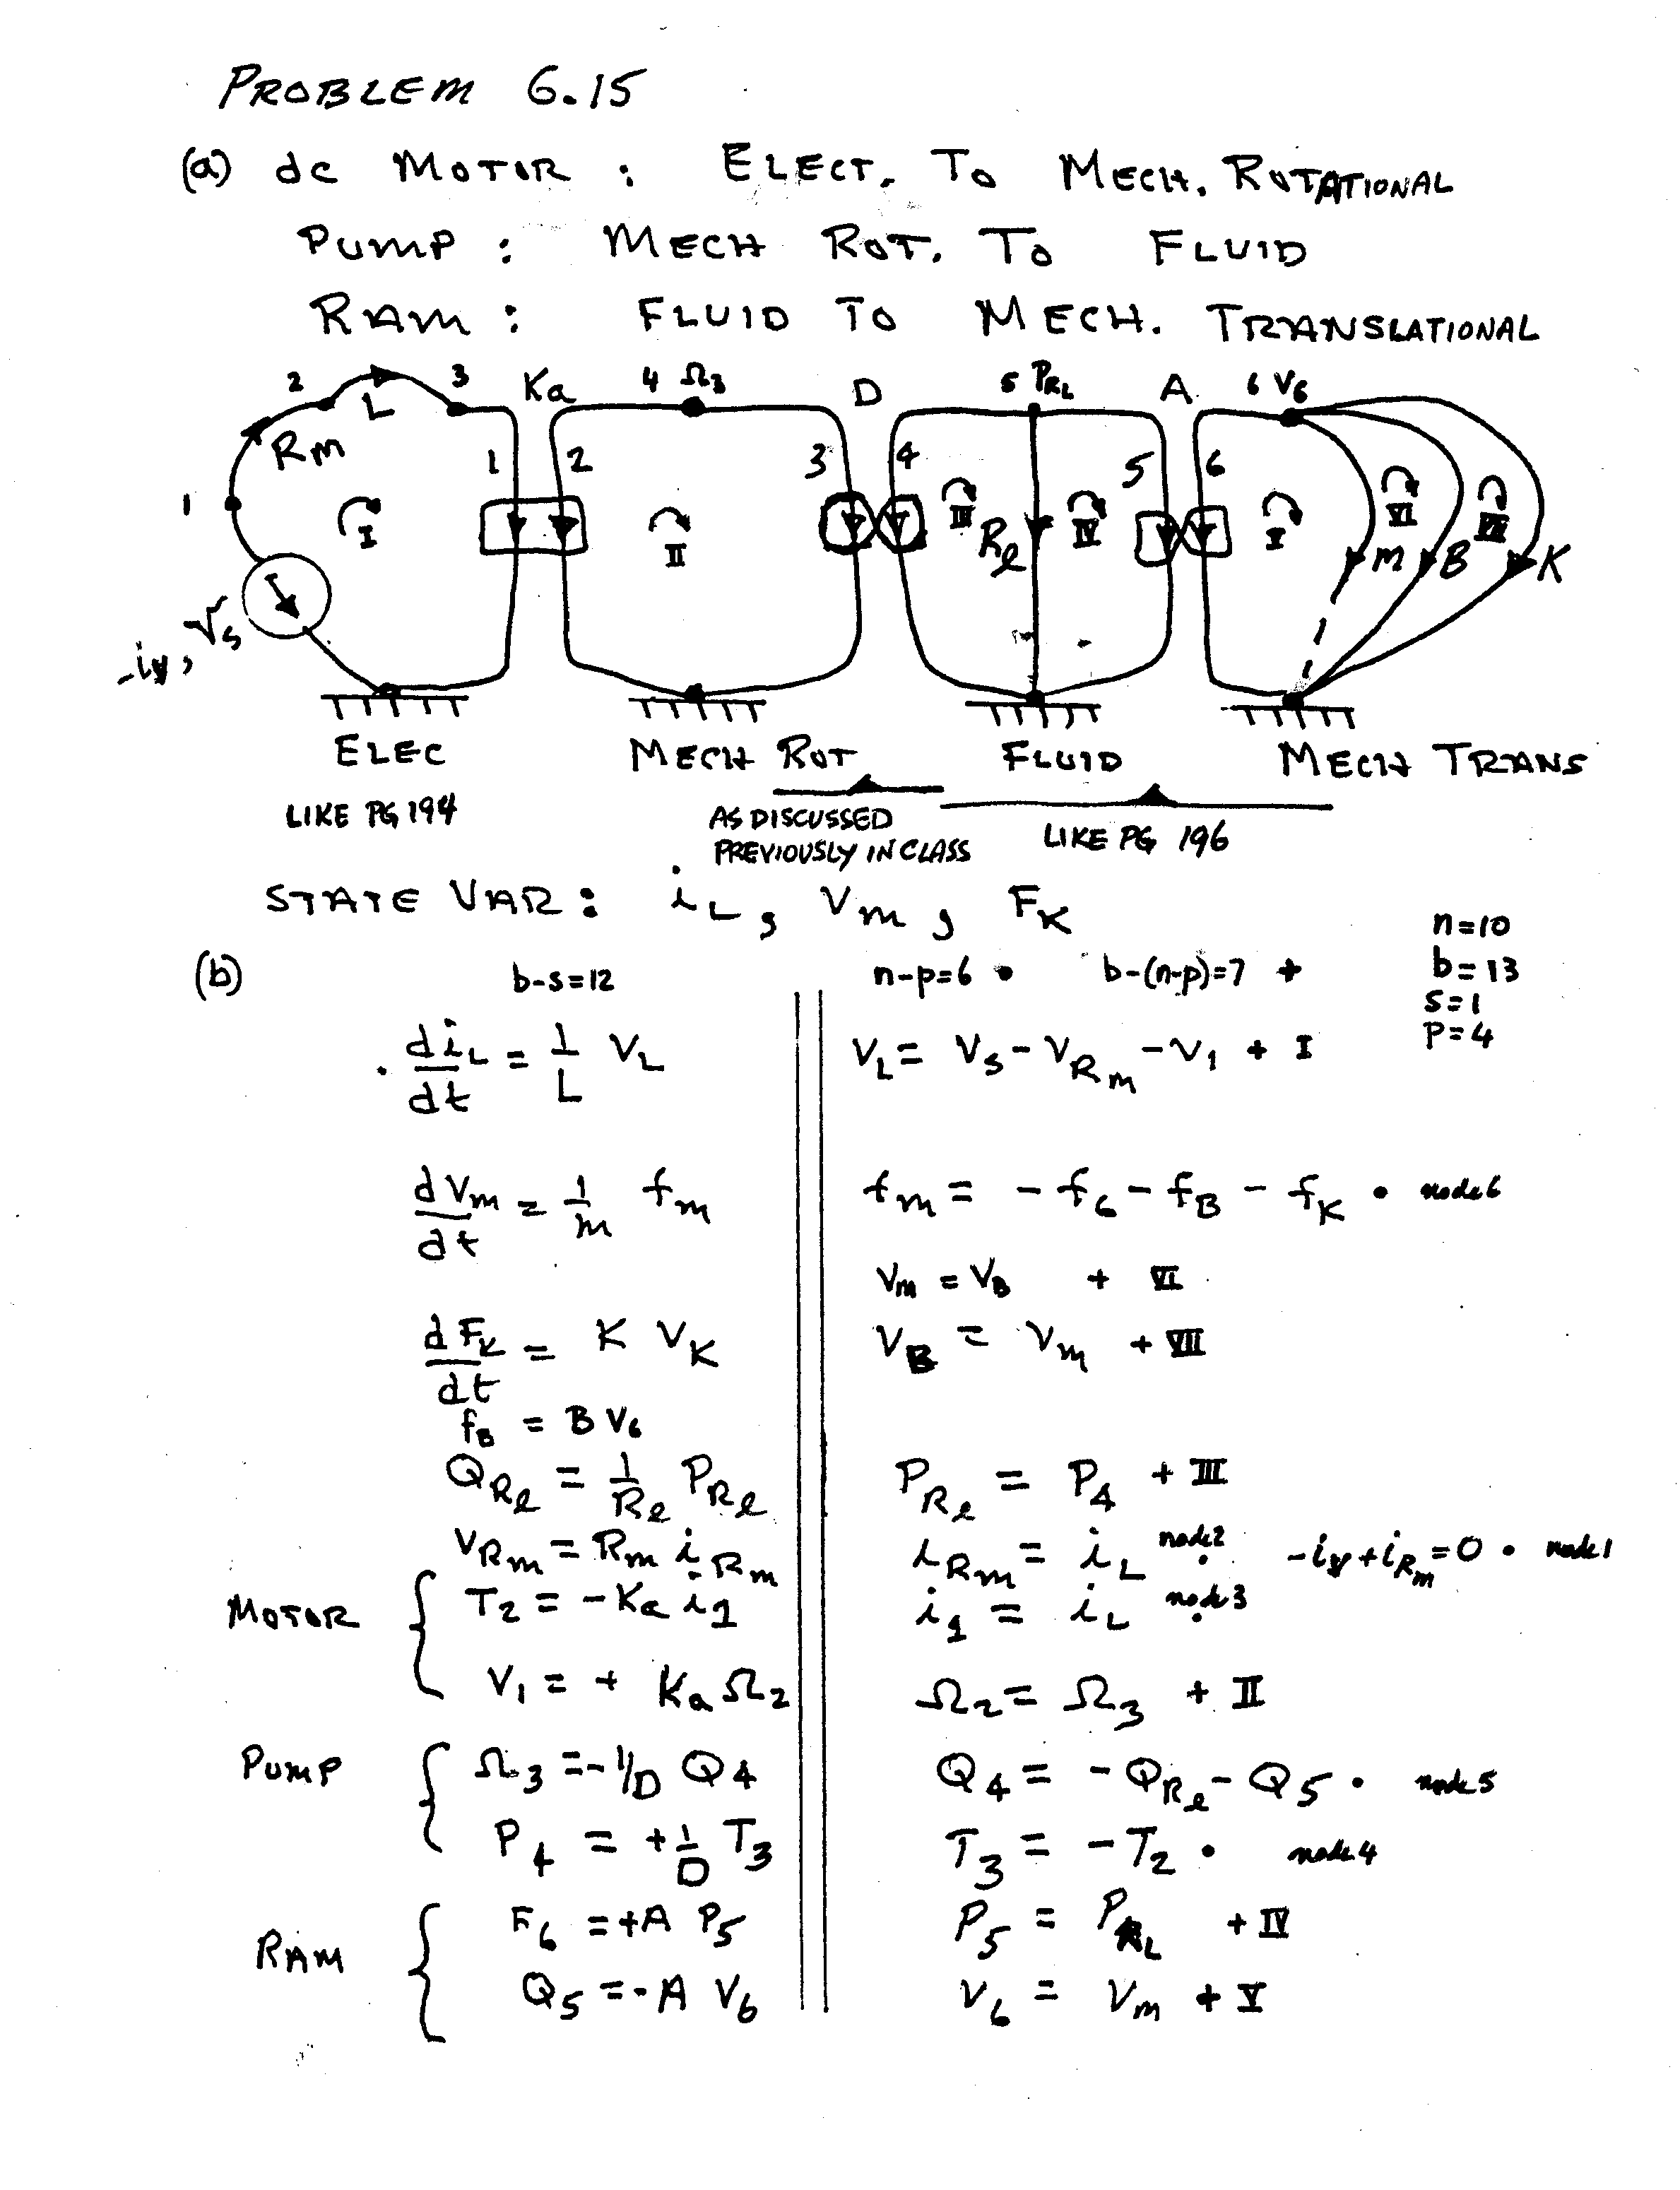 PROBLEM 6.15
(a) dc MOTOR : ELECT. TO MECH. ROTATIONAL
PUMP : MECH ROT. TO FLUID
RAM : FLUID TO MECH. TRANSLATIONAL
2 L 3 Ka 4 Ω3 D 5 PRL A 6 V6
Rm 1 2 3 4 5 6
1 I II III Rl IV I VI VII
m B K
-iv, Vs
ELEC MECH ROT FLUID MECH TRANS
LIKE PG 194 AS DISCUSSED PREVIOUSLY IN CLASS LIKE PG 196
STATE VAR : iL , Vm , FK
n=10
(b) b-s=12 n-p=6 • b-(n-p)=7 + b=13
s=1
p=4
• diL/dt = 1/L VL VL = Vs - VRm - V1 + I
dVm/dt = 1/m fm fm = - f6 - fB - fK • node 6
Vm = VB + VI
dFK/dt = K VK VB = Vm + VII
fB = B V6
QRl = 1/Rl PRl PRl = P4 + III
VRm = Rm iRm iRm = iL node 2 • -iv + iRm = 0 • node 1
MOTOR { T2 = -Ka i1 i1 = iL node 3 •
V1 = + Ka Ω2 Ω2 = Ω3 + II
PUMP { Ω3 = -1/D Q4 Q4 = - QRl - Q5 • node 5
P4 = + 1/D T3 T3 = - T2 • node 4
RAM { F6 = +A P5 P5 = PRL + IV
Q5 = -A V6 V6 = Vm + V